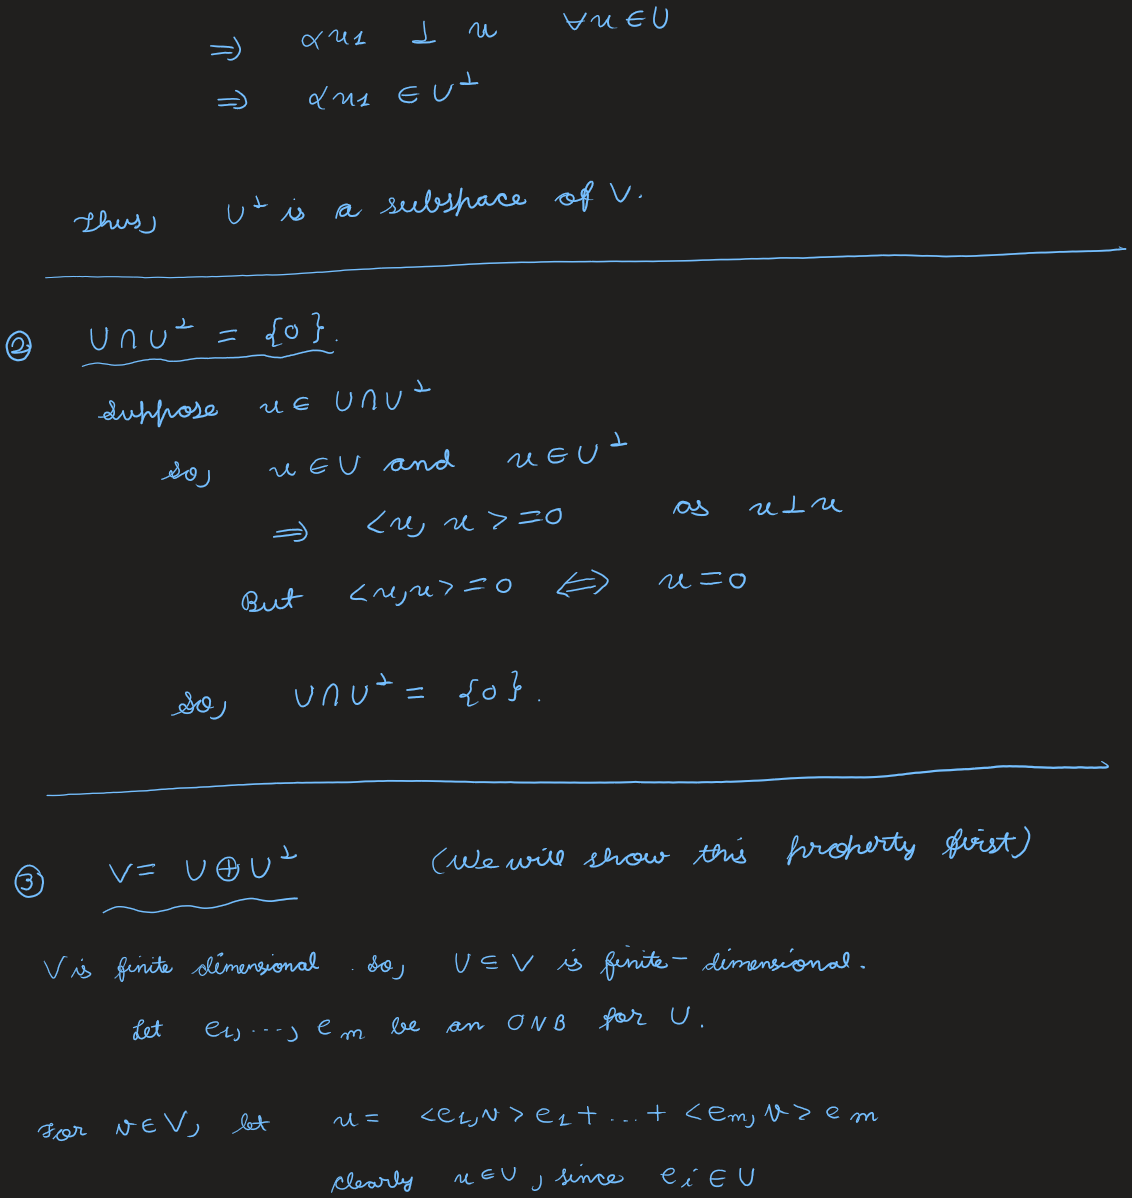 ⇒ αx₁ ⊥ u ∀u∈U
⇒ αx₁ ∈ U^⊥
Thus, U^⊥ is a subspace of V.
② U∩U^⊥ = {0}.
Suppose x ∈ U∩U^⊥
So, x ∈ U and x ∈ U^⊥
⇒ <x, x> = 0 as x⊥x
But <x,x> = 0 ⇔ x = 0
So, U∩U^⊥ = {0}.
③ V = U⊕U^⊥ (We will show this property first)
V is finite dimensional. So, U ⊆ V is finite-dimensional.
Let e₁, ..., e_m be an ONB for U.
For v∈V, let u = <e₁,v>e₁ + ... + <e_m,v>e_m
clearly u∈U, since e_i ∈ U